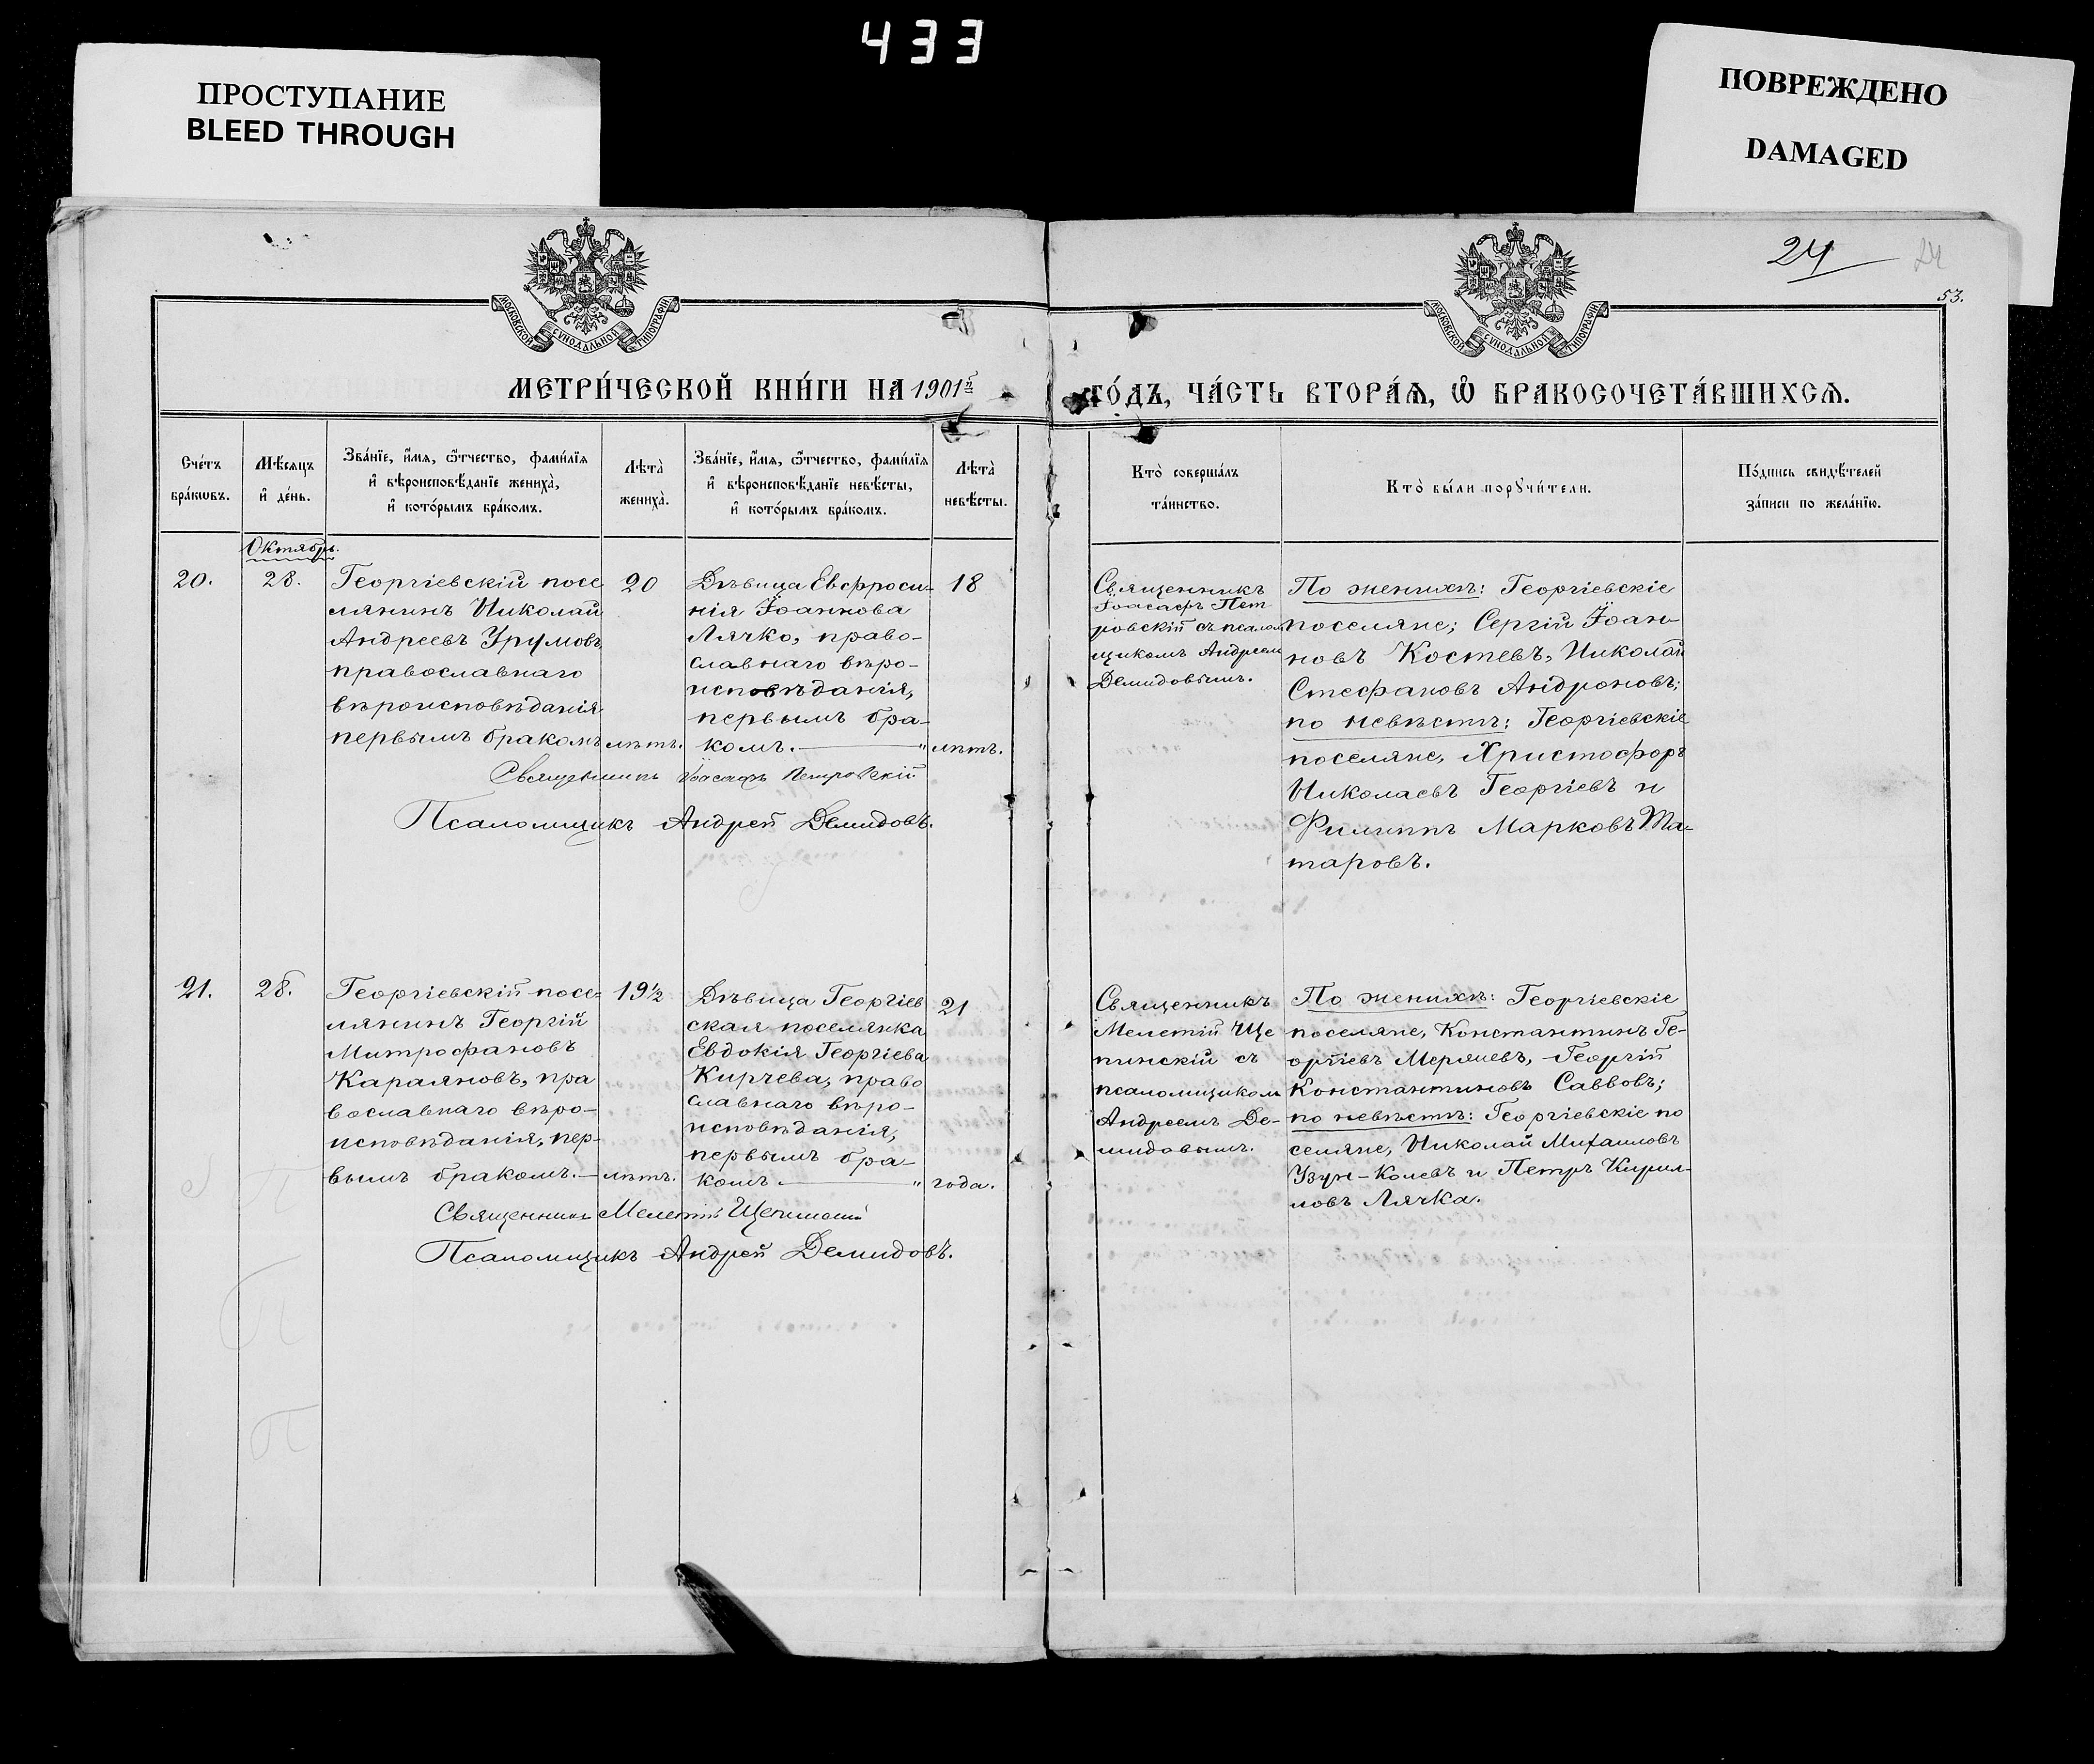 433
ПРОСТУПАНИЕ
BLEED THROUGH
ПОВРЕЖДЕНО
DAMAGED
24
24
53.
МОСКОВСКОЙ СѴНОДАЛЬНОЙ ТИПОГРАФІИ
МОСКОВСКОЙ СѴНОДАЛЬНОЙ ТИПОГРАФІИ
МЕТРИ́ЧЕСКОЙ КНИ́ГИ НА 1901й
ГО́ДЪ, ЧА́СТЬ ВТОРА́Ѧ, Ѡ҆ БРАКОСОЧЕТА́ВШИХСѦ.
Сче́тъ
бра́кѡвъ.
Мѣ́сяцъ
и҆ де́нь.
Зва́нїе, и҆́мя, ѻ҆́тчество, фами́лїя
и҆ вѣроисповѣ́данїе жениха̀,
и҆ кото́рымъ бра́комъ.
Лѣта̀
жениха̀.
Зва́нїе, и҆́мя, ѻ҆́тчество, фами́лїя
и҆ вѣроисповѣ́данїе невѣ́сты,
и҆ кото́рымъ бра́комъ.
Лѣта̀
невѣ́сты.
Кто̀ соверша́лъ
та́инство.
Кто̀ бы́ли порꙋчи́тели.
По́дпись свидѣ́телей
за́писи по жела́нїю.
Октябрь.
20.
28.
Георгіевскій посе
лянинъ Николай
Андреевъ Урумовъ,
православнаго
вѣроисповѣданія
первымъ бракомъ
20
лѣтъ.
Дѣвица Евфроси-
нія Іоаннова
Лячко, право-
славнаго вѣро-
исповѣданія,
первымъ бра-
комъ. — "
18
лѣтъ.
Священникъ Іоасафъ Петровскій
Псаломщикъ Андрей Демидовъ.
Священникъ
Іоасафъ Пет
ровскій съ псалом
щикомъ Андреем
Демидовымъ.
По женихѣ: Георгіевскіе
поселяне; Сергій Іоан-
новъ Костевъ, Николай
Стефановъ Андроновъ;
по невѣстѣ: Георгіевскіе
поселяне, Христофоръ
Николаевъ Георгіевъ и
Филиппъ Марковъ Та-
таровъ.
21.
28.
Георгіевскій посе-
лянинъ Георгій
Митрофановъ
Караяновъ, пра
вославнаго вѣро-
исповѣданія, пер-
вымъ бракомъ. —
19½
лѣтъ.
Дѣвица Георгіев
ская поселянка
Евдокія Георгіева
Кирчева, право
славнаго вѣро-
исповѣданія,
первымъ бра-
комъ. — "
21
года.
Священникъ Мелетій Щепинскій
Псаломщикъ Андрей Демидовъ.
Священникъ
Мелетій Ще
пинскій съ
псаломщиком
Андреемъ Де-
мидовымъ.
По женихѣ: Георгіевскіе
поселяне, Константинъ Ге-
оргіевъ Меряшевъ, Георгій
Константиновъ Саввовъ;
по невѣстѣ: Георгіевскіе по
селяне, Николай Михаиловъ
Узун-Колевъ и Петръ Кирил-
ловъ Лячка.